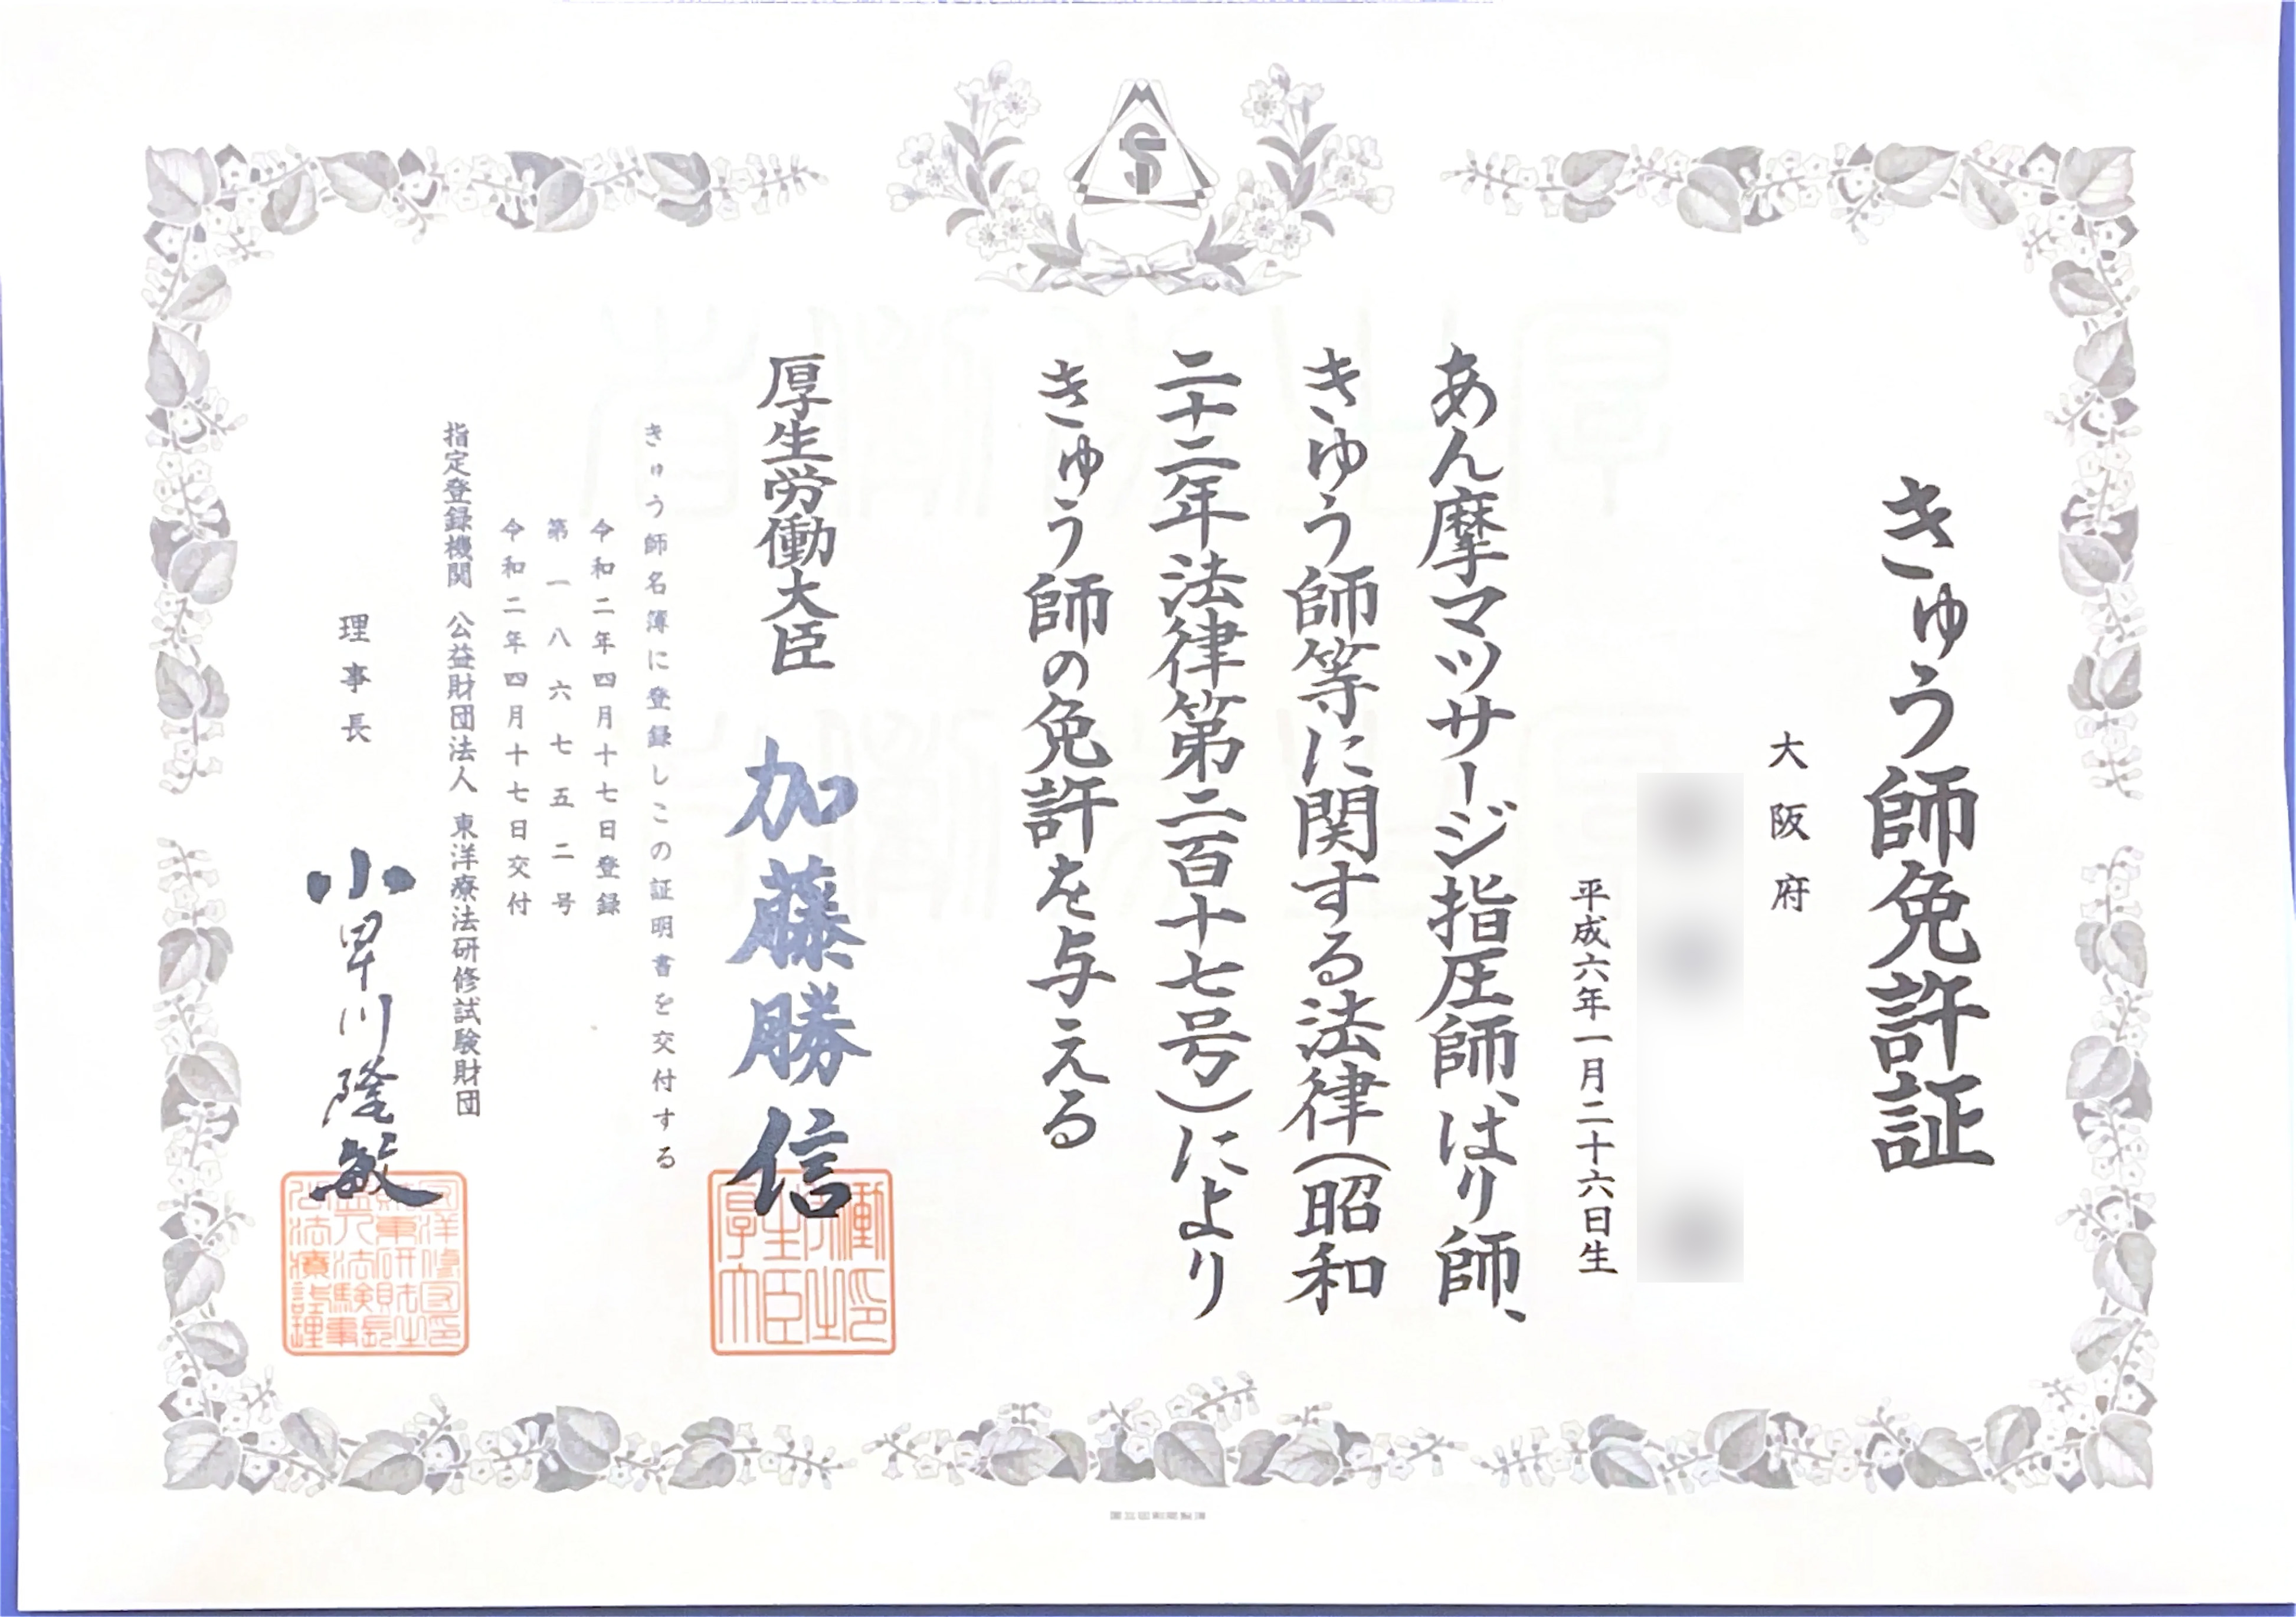 きゅう師免許証
大阪府
平成六年一月二十六日生
あん摩マッサージ指圧師、はり師、
きゆう師等に関する法律(昭和
二十二年法律第二百十七号)により
きゅう師の免許を与える
厚生労働大臣 加藤勝信
きゅう師名簿に登録しこの証明書を交付する
令和二年四月十七日登録
第一八六七五二号
令和二年四月十七日交付
指定登録機関 公益財団法人 東洋療法研修試験財団
理事長 小早川隆敏